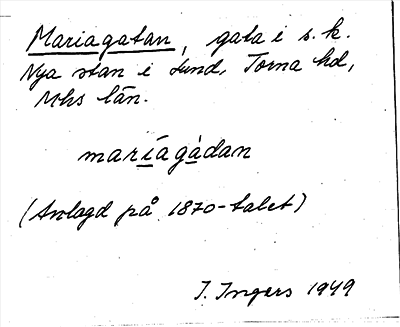 Mariagatan, gata i s. k.
Nya stan i Lund, Torna hd,
Mhs län.
maríagàdan
(Anlagd på 1870-talet)
I. Ingers 1949